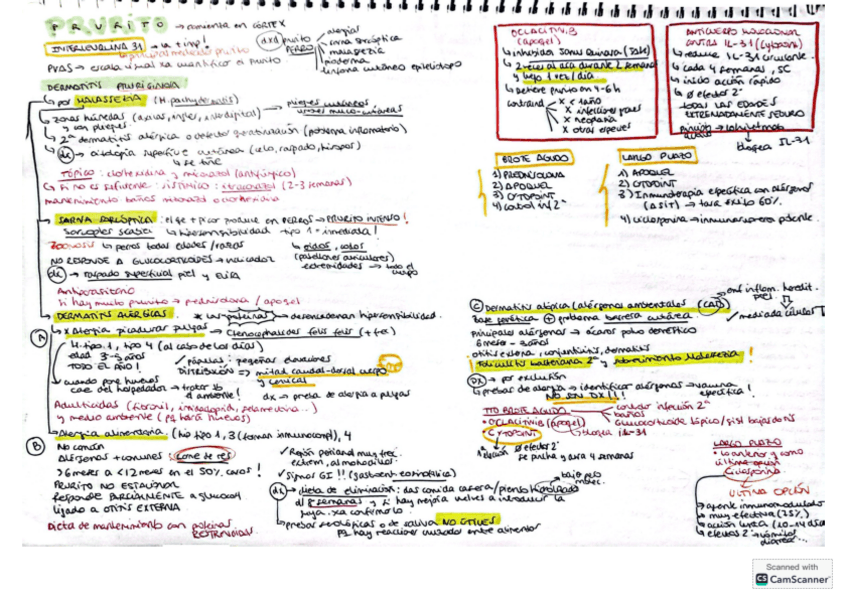 PRURITO → comienza en CÓRTEX
INTERLEUQUINA 31 → la + imp!
PVAS → escala visual xa cuantificar el prurito
dxd prurito PERRO
alergias
sarna sarcóptica
malassezia
pioderma
linfoma cutáneo epiteliotropo
DERMATITIS PRURIGINOSA
↳ por MALASSEZIA (M. pachydermatis)
↳ zonas húmedas (axilas, ingles, interdigital) → pliegues cutáneos, uniones muco-cutáneas
y con pliegues.
↳ 2º dermatitis atópica o defectos queratinización (problema inflamatorio)
↳ dx → citología superficie cutánea (celo, raspado, hisopos)
↳ se tiñe
Tópico: clorhexidina y miconazol (antifúngico)
↳ Si no es suficiente: sistémico: itraconazol (2-3 semanas)
mantenimiento: baños miconazol o clorhexidina
↳ SARNA SARCÓPTICA: el que + picor produce en PERROS → PRURITO INTENSO!
Sarcoptes scabiei ↳ hipersensibilidad tipo 1 = inmediata!
Zoonosis ↳ perros todas edades/razas
↳ oídos, codos
(pabellones auriculares)
extremidades → todo el cuerpo
NO RESPONDE A GLUCOCORTICOIDES → indicador
dx → raspado superficial piel y ELISA
Antiparasitario
Si hay mucho prurito → prednisolona / apoquel
↳ DERMATITIS ALÉRGICAS * las proteínas desencadenan hipersensibilidad.
A ↳ x Alergia picaduras pulgas → Ctenocephalides felis felis (+ fec)
H. tipo 1, tipo 4 (al cabo de los días)
edad 3-5 años
TODO EL AÑO!
✓ pápulas: pequeñas elevaciones
DISTRIBUCIÓN → mitad caudal-dorsal cuerpo y cervical
↳ cuando pone huevos caen del hospedador → tratar tb el ambiente!
dx → prueba de alergia a pulgas
Adulticidas (fipronil, imidacloprid, selamectina...)
y medio ambiente (pq habrá huevos)
B ↳ Alergia alimentaria (hip tipo 1, 3 (forman inmunocompl), 4
No común
Alérgenos + comunes: carne de res
>6 meses a <12 meses en el 50% casos!
PRURITO NO ESTACIONAL
Responde PARCIALMENTE a glucocort
ligado a OTITIS EXTERNA
Dieta de mantenimiento con proteínas RESTRINGIDAS
✓ Región perianal muy frec
extrem, almohadillas
✓ signos GI!! (gastroent. eosinofílica)
dx → dieta de eliminación: das comida casera/pienso hidrolizado
bajo peso molec.
d/ 8 semanas y si hay mejora vuelves a introducir la
suya xa confirmarlo
↳ pruebas serológicas o de saliva NO ÚTILES
pq hay reacciones cruzadas entre alimentos
OCLACITINIB (apoquel)
↳ inhibidor Janus Quinasa (JAK)
↳ 2 veces al día durante 2 semanas
y luego 1 vez/día
↳ Detiene prurito en 4-6h
contraind
x < 1 año
x infecciones graves
x neoplasia
x otras especies
ANTICUERPO MONOCLONAL CONTRA IL-31 (Cytopoint)
↳ reduce IL-31 circulante.
↳ cada 4 semanas, SC
↳ inicio acción rápido
↳ Ø efectos 2º
TODAS LAS EDADES
EXTREMADAMENTE SEGURO
↳ bloquea IL-31
BROTE AGUDO
1) PREDNISOLONA
2) APOQUEL
3) CYTOPOINT
4) control inf 2ª
LARGO PLAZO
1) APOQUEL
2) CYTOPOINT
3) Inmunoterapia específica con alérgenos
(ASIT) → tasa éxito 60%.
4) ciclosporina → inmunosupresor potente.
C Dermatitis atópica (alérgenos ambientales) (CAD) → enf inflam. heredit. piel
✓ mediada células T
Base genética + problema barrera cutánea
Principales alérgenos → ácaros polvo doméstico
6 meses - 3 años
· otitis externa, conjuntivitis, dermatitis
Foliculitis bacteriana 2ª y sobrecrecimiento Malassezia!
DX → por exclusión
↳ pruebas de alergia → identificar alérgenos → vacuna específica!
NO SON DX!!!
TTO BROTE AGUDO → controlar infección 2ª
baños
· OCLACITINIB (apoquel) glucocorticoide tópico/sist bajas dosis
· CYTOPOINT → bloquea IL-31
Ø efectos 2º
Se pincha y dura 4 semanas
LARGO PLAZO
· lo anterior y como última opción Ciclosporina
ÚLTIMA OPCIÓN
↳ agente inmunomodulador
↳ muy efectiva (75%)
↳ acción lenta (10-14 días)
↳ efectos 2º → vómitos diarrea...
Scanned with
CS CamScanner